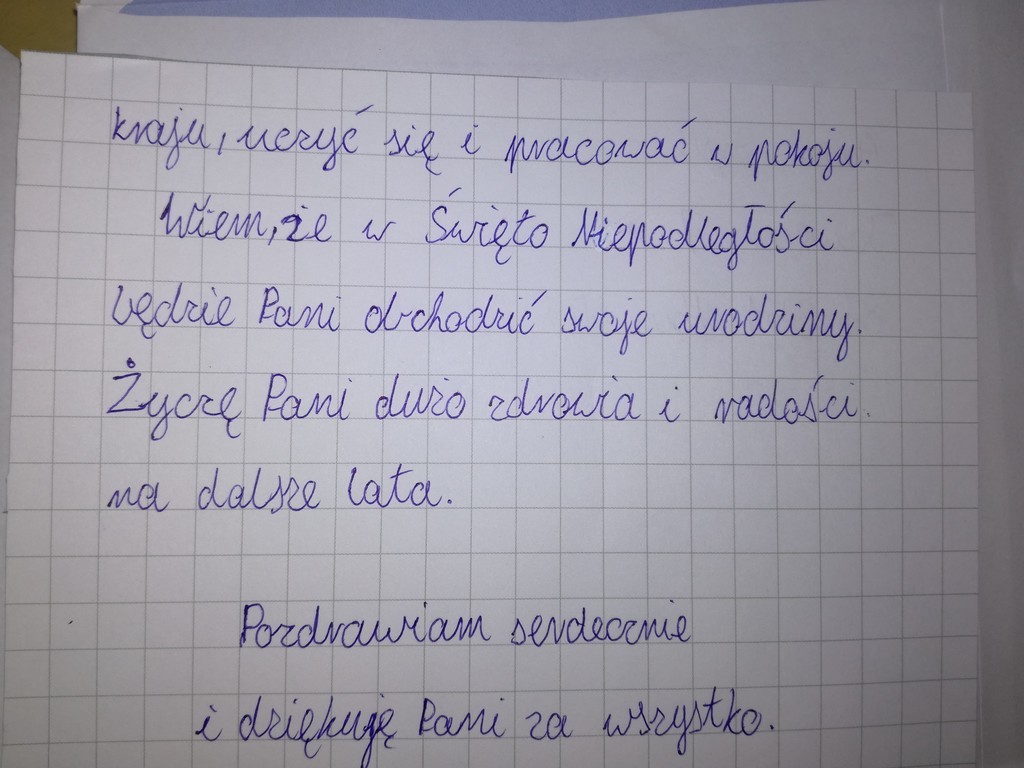 kraju, uczyć się i pracować w pokoju.
Wiem, że w Święto Niepodległości
będzie Pani obchodzić swoje urodziny.
Życzę Pani dużo zdrowia i radości.
na dalsze lata.
Pozdrawiam serdecznie
i dziękuję Pani za wszystko.